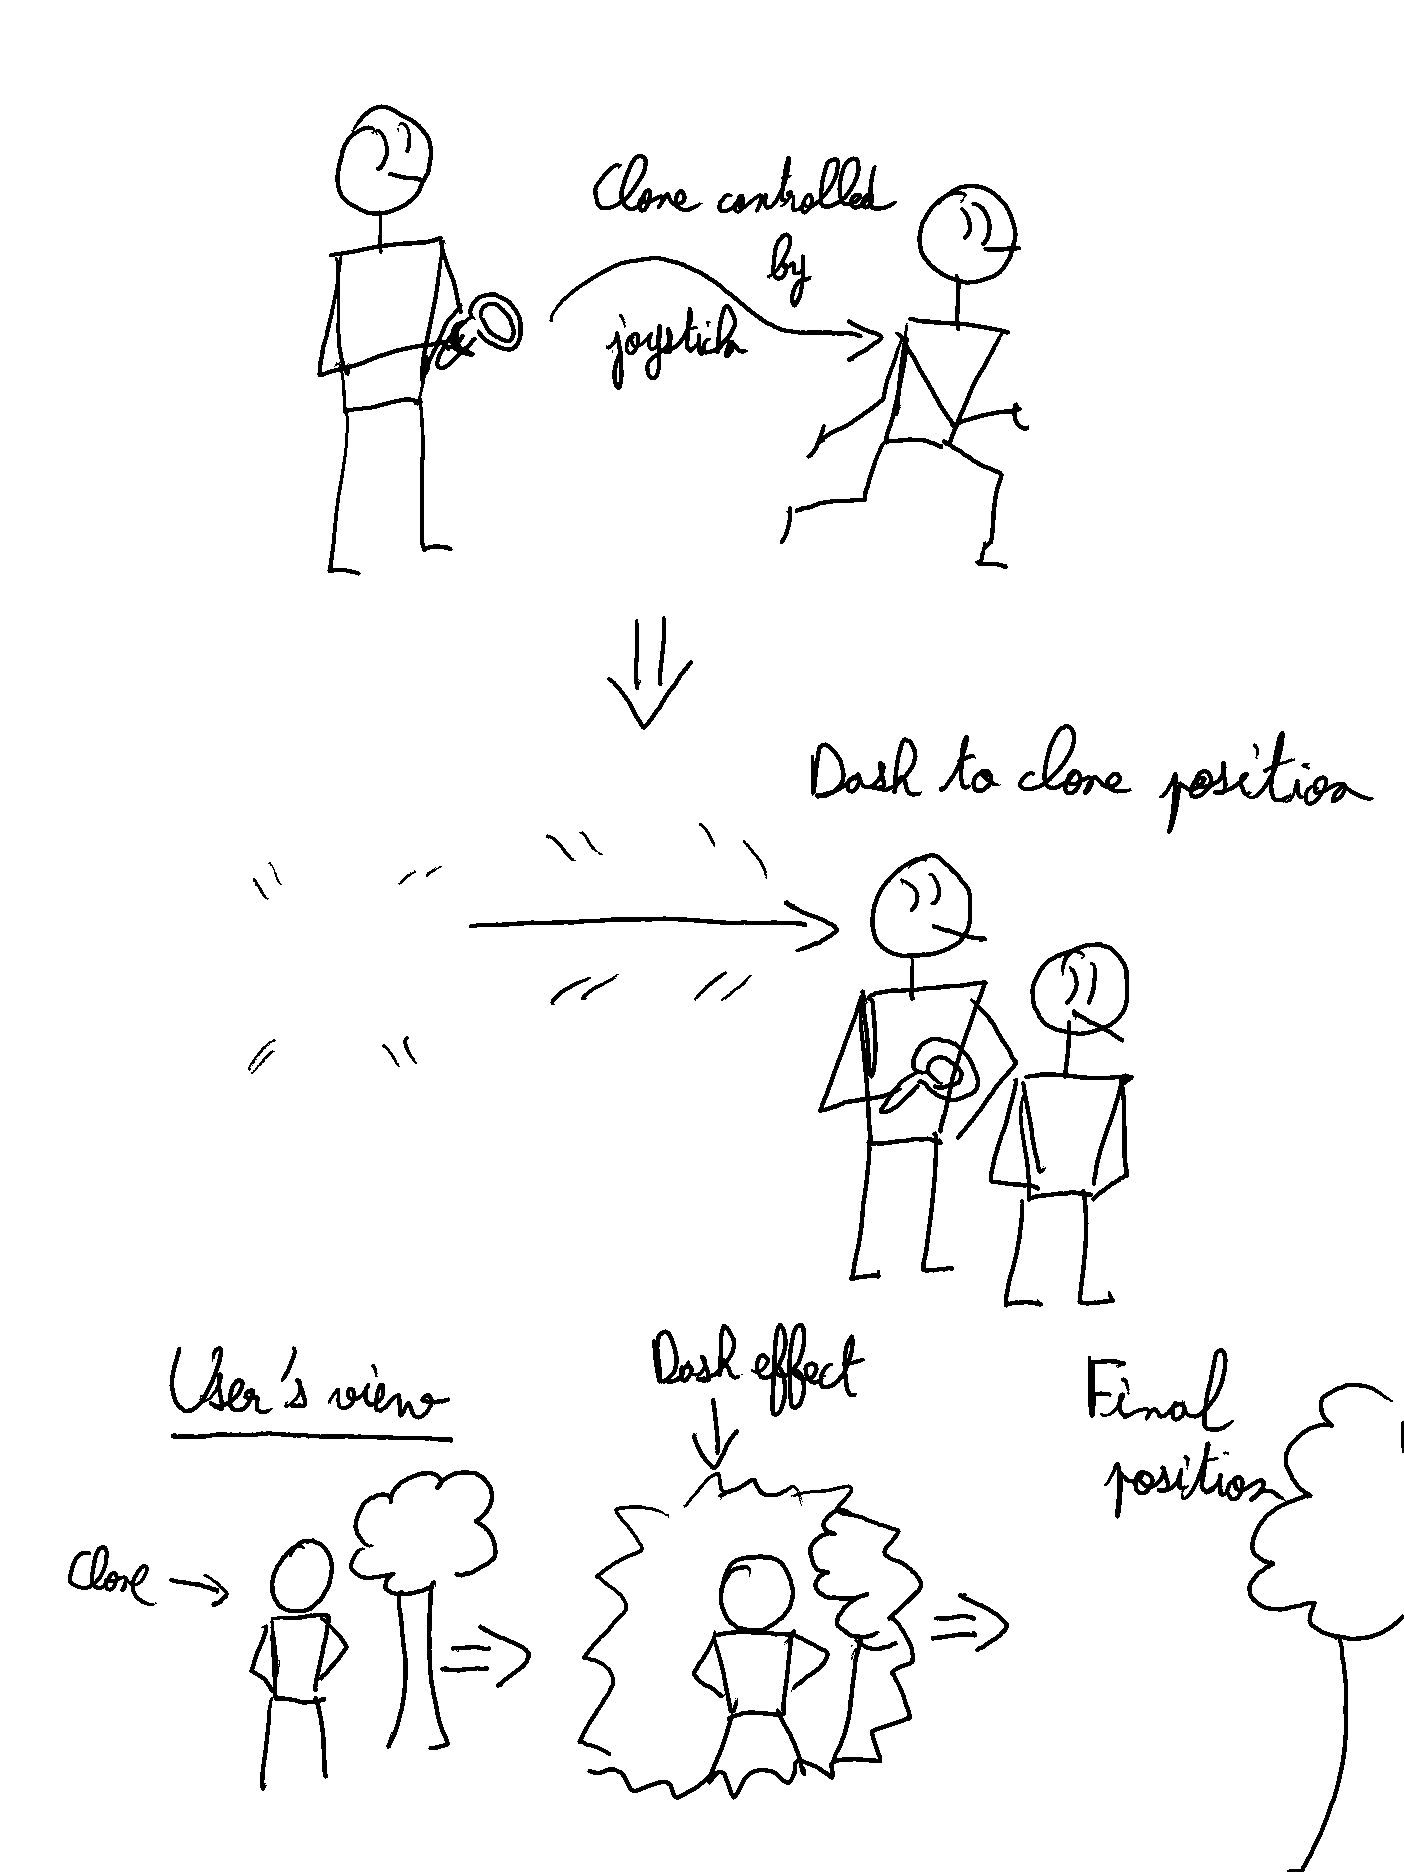 Clone controlled
by
joystick
Dash to clone position
User's view
Dash effect
Final
position
Clone